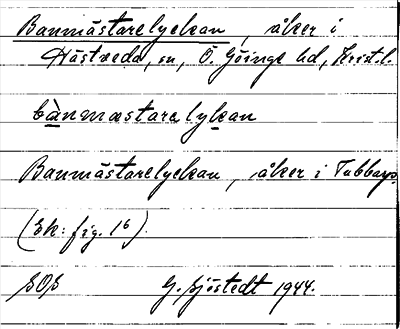 Banmästarelyckan, åker i
Hästveda, sn, Ö. Göinge hd, Krist. l.
bànmæstarelykan
Banmästarelyckan, åker i Tubbarp.
(Ek: fig. 16).
SOS G. Sjöstedt 1944.